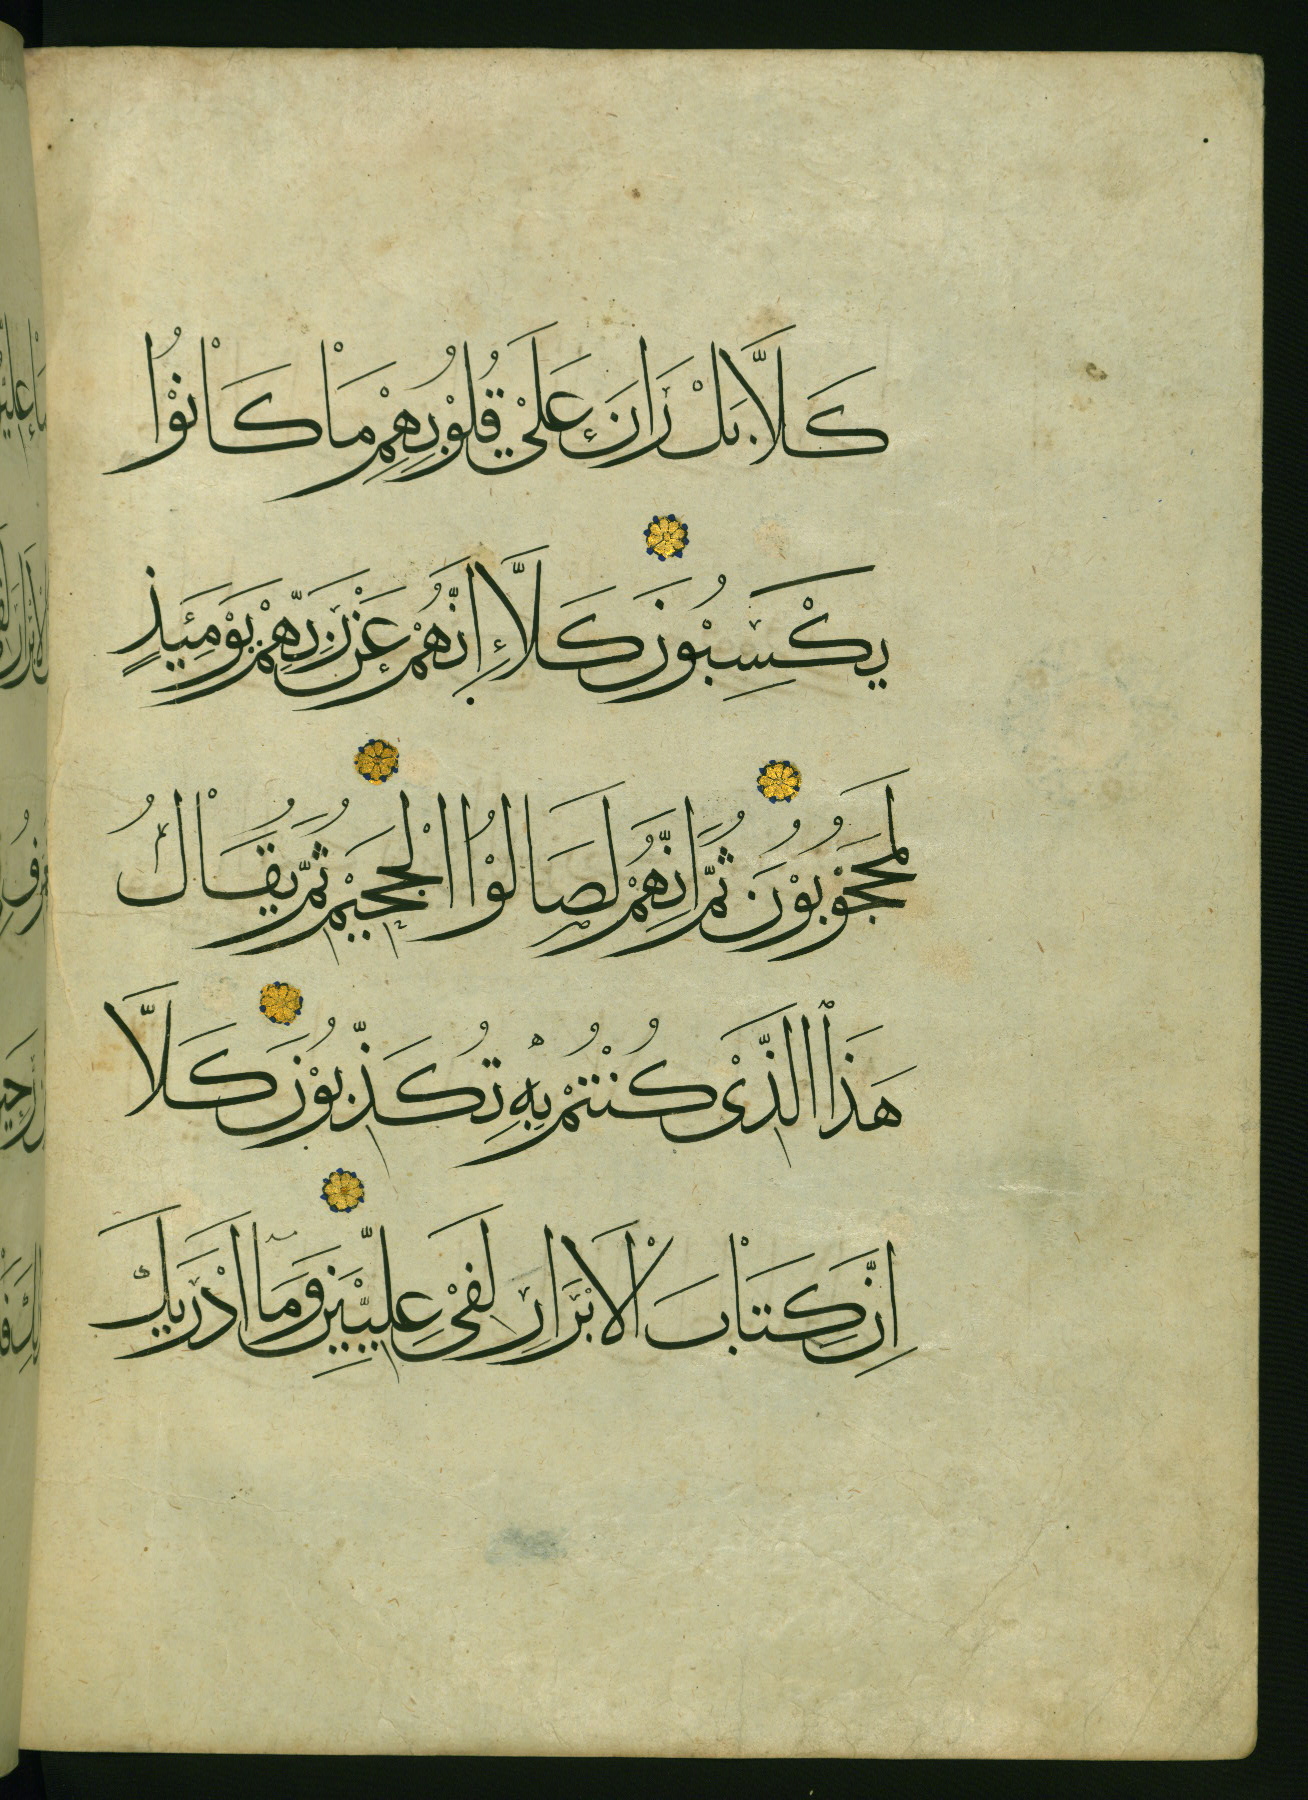 كَلَّا بَلْ رَانَ عَلَىٰ قُلُوْبِهِمْ مَا كَانُوْا
يَكْسِبُوْنَ كَلَّا اِنَّهُمْ عَنْ رَبِّهِمْ يَوْمَئِذٍ
لَمَحْجُوْبُوْنَ ثُمَّ اِنَّهُمْ لَصَالُوْا الْجَحِيْمِ ثُمَّ يُقَالُ
هَذَا الَّذِىْ كُنْتُمْ بِهِ تُكَذِّبُوْنَ كَلَّا
اِنَّ كِتَابَ الْاَبْرَارِ لَفِىْ عِلِّيِّيْنَ وَمَا اَدْرَيكَ